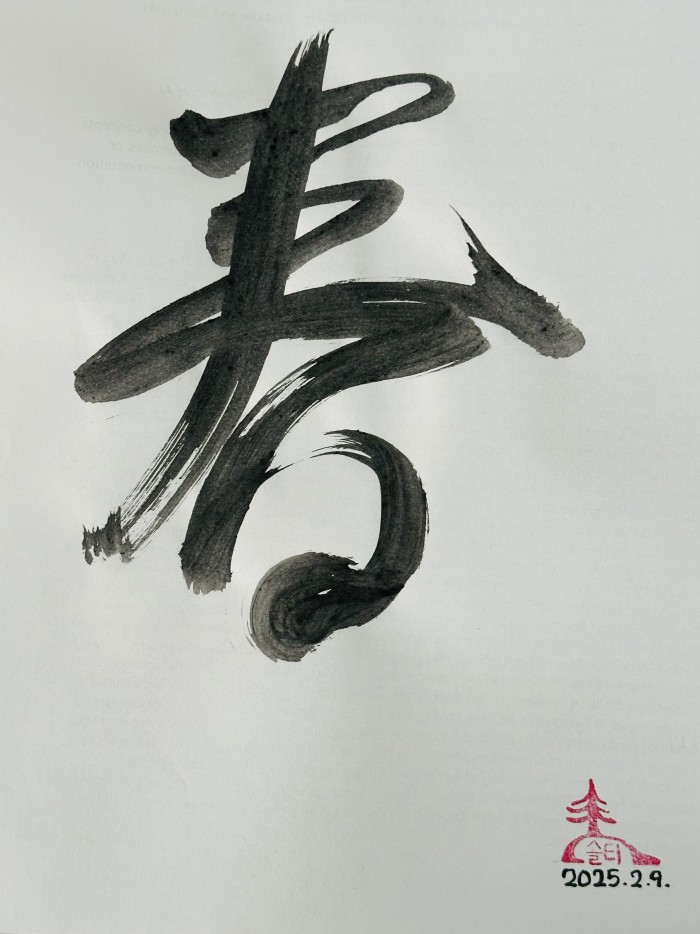 春
솔티
2025.2.9.